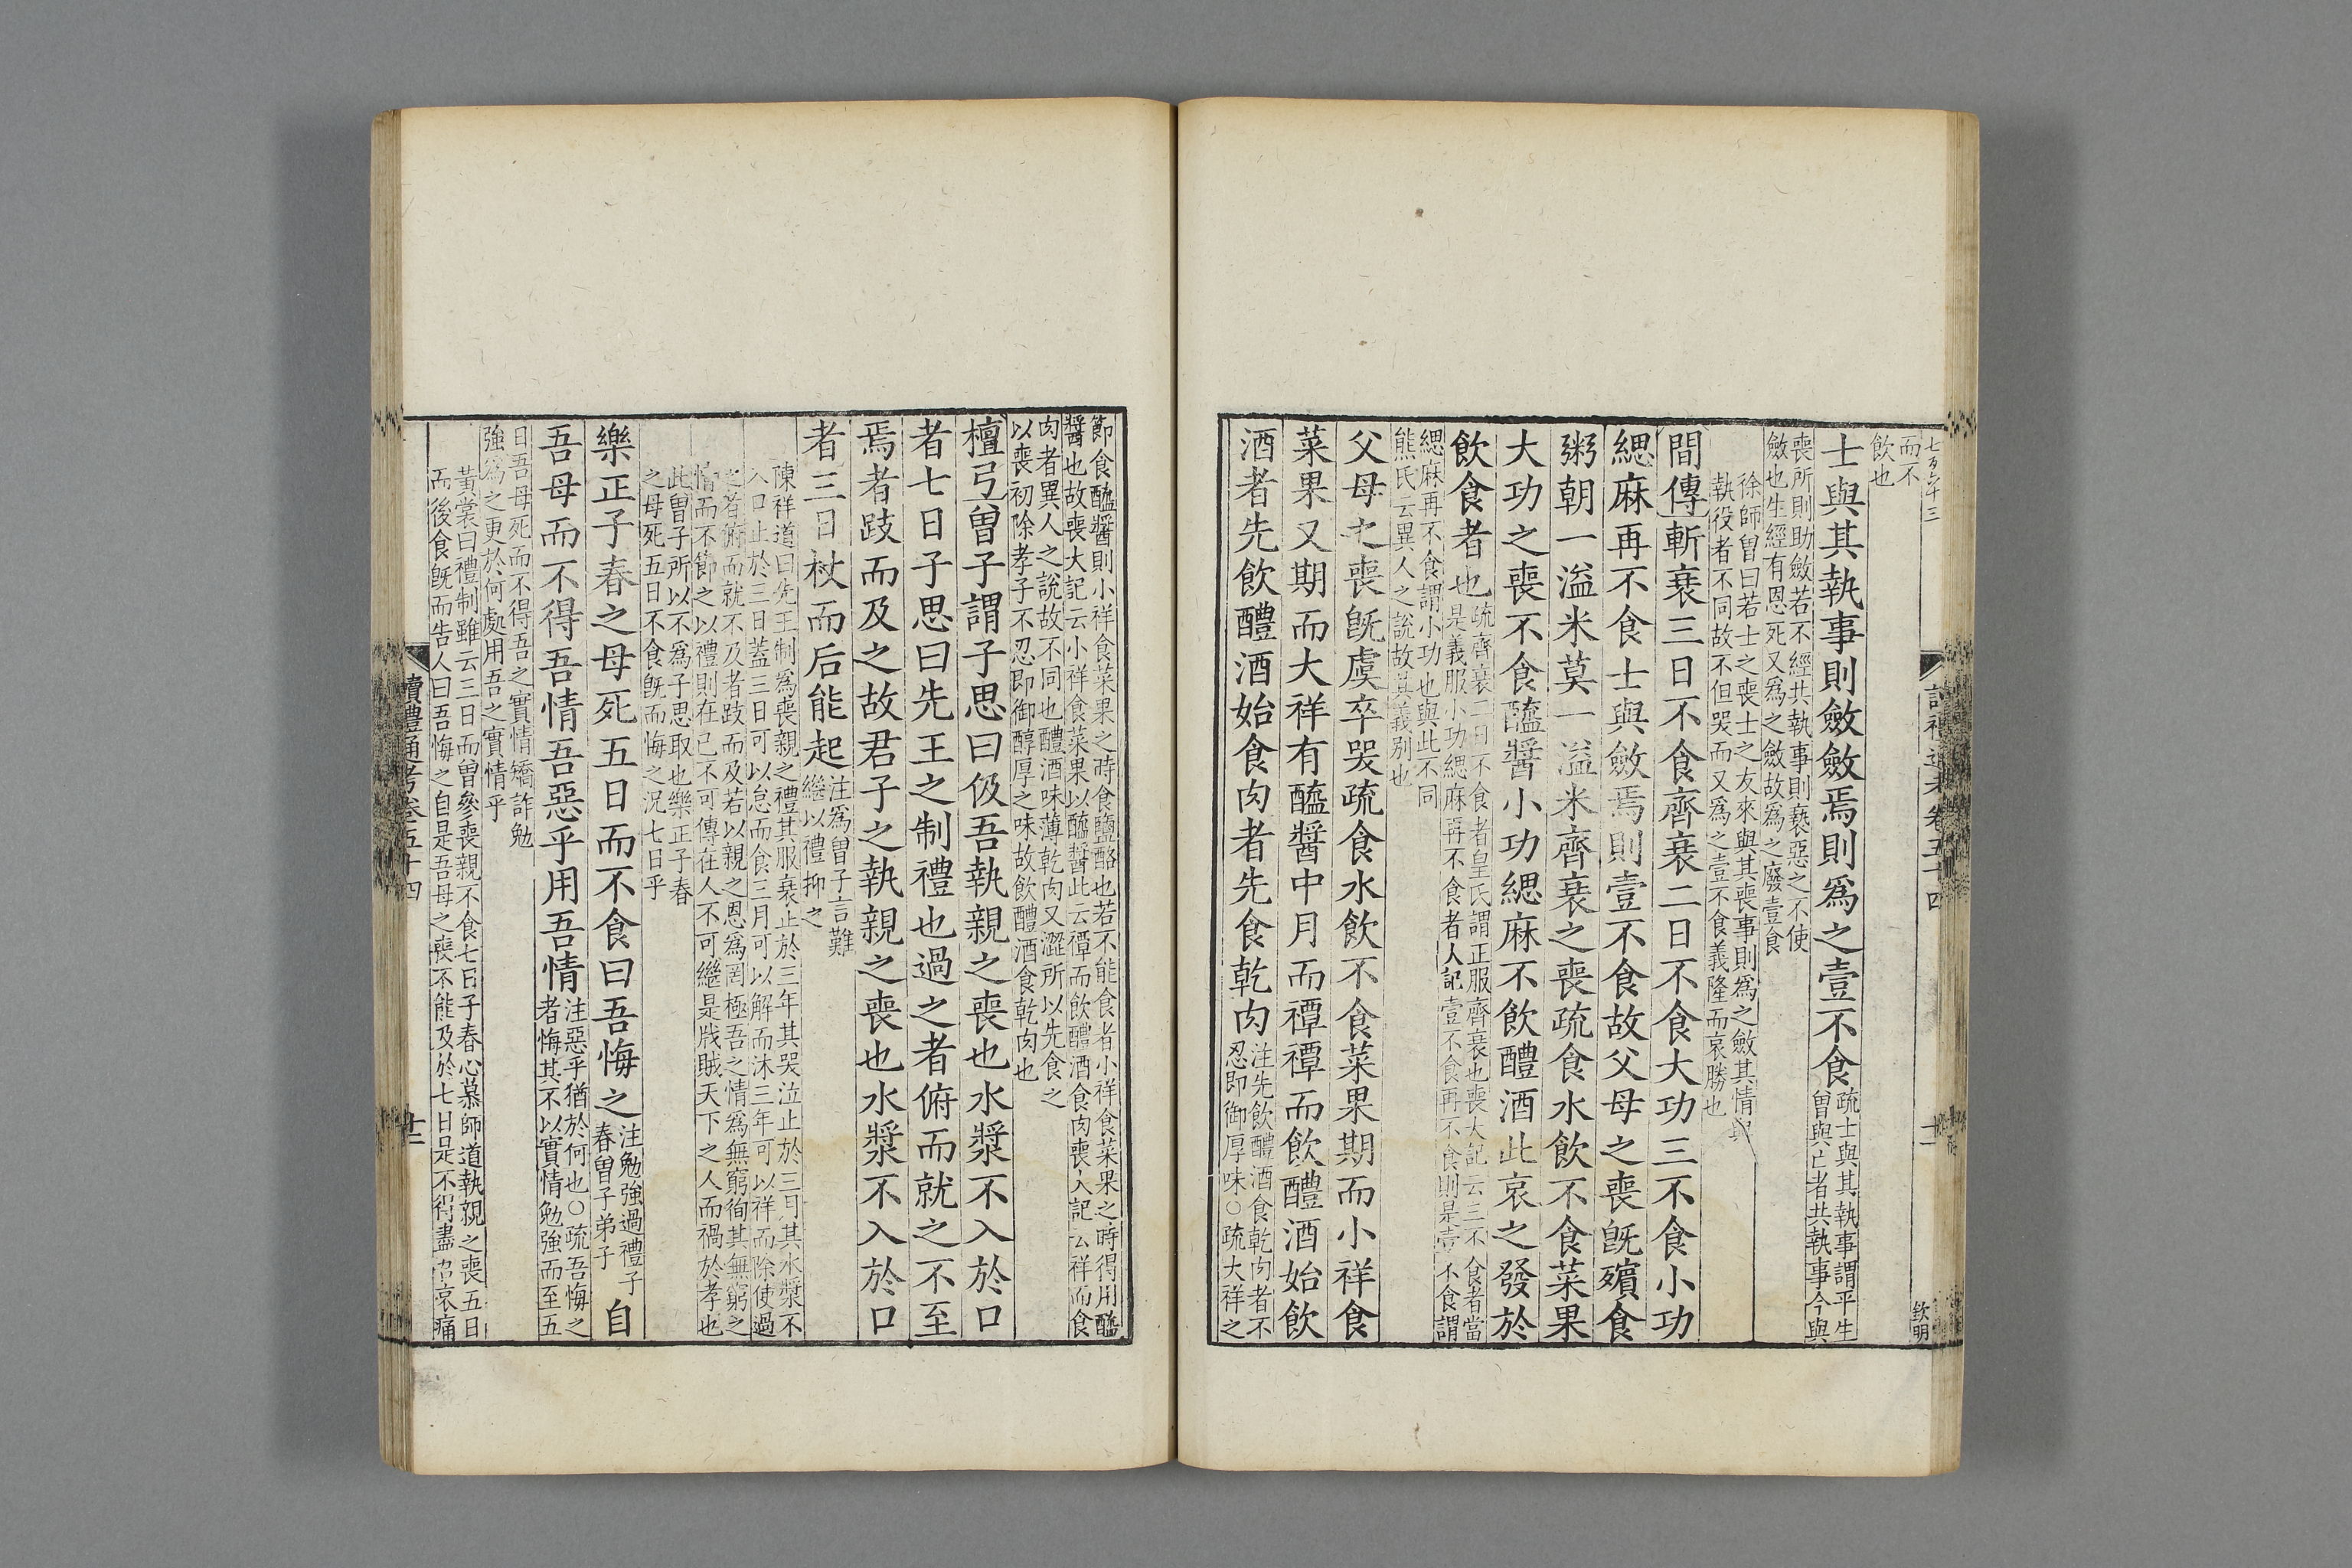 七百六十三
讀禮通考卷五十四
十二
欽明
而不
飲也
士與其執事則斂斂焉則爲之壹不食疏士與其執事謂平生
曾與亡者共執事今與
喪所則助斂若不經共執事則褻惡之不使
斂也生經有恩死又爲之斂故爲之廢壹食
徐師曾曰若士之喪士之友來與其喪事則爲之斂其情與
執役者不同故不但哭而又爲之壹不食義隆而哀勝也
間傳斬衰三日不食齊衰二日不食大功三不食小功
緦麻再不食士與斂焉則壹不食故父母之喪旣殯食
粥朝一溢米莫一溢米齊衰之喪疏食水飲不食菜果
大功之喪不食醯醬小功緦麻不飲醴酒此哀之發於
飲食者也疏齊衰二日不食者皇氏謂正服齊衰也喪大記云三不食者當
是義服小功緦麻再不食者人記壹不食再不食則是壹不食謂
緦麻再不食謂小功也與此不同
熊氏云異人之說故其義別也
父母之喪旣虞卒哭疏食水飲不食菜果期而小祥食
菜果又期而大祥有醯醬中月而禫禫而飲醴酒始飲
酒者先飲醴酒始食肉者先食乾肉注先飲醴酒食乾肉者不
忍即御厚味○疏大祥之
節食醯醬則小祥食菜果之時食鹽酪也若不能食者小祥食菜果之時得用醯
醬也故喪大記云小祥食菜果以醯醬此云禫而飲醴酒食肉喪大記云祥而食
肉者異人之說故不同也醴酒味薄乾肉又澀所以先食之
以喪初除孝子不忍即御醇厚之味故飲醴酒食乾肉也
檀弓曾子謂子思曰伋吾執親之喪也水漿不入於口
者七日子思曰先王之制禮也過之者俯而就之不至
焉者跂而及之故君子之執親之喪也水漿不入於口
者三日杖而后能起注爲曾子言難
繼以禮抑之
陳祥道曰先王制爲喪親之禮其服衰止於三年其哭泣止於三月其水漿不
入口止於三日蓋三日可以怠而食三月可以解而沐三年可以祥而除使過
之者俯而就不及者跂而及若以親之恩爲罔極吾之情爲無窮徇其無窮之
情而不節之以禮則在已不可傳在人不可繼是戕賊天下之人而禍於孝也
此曾子所以不爲子思取也樂正子春
之母死五日不食旣而悔之況七日乎
樂正子春之母死五日而不食曰吾悔之注勉強過禮子
春曾子弟子自
吾母而不得吾情吾惡乎用吾情注惡乎猶於何也○疏吾悔之
者悔其不以實情勉強而至五
日吾母死而不得吾之實情矯詐勉
強爲之更於何處用吾之實情乎
黃裳曰禮制雖云三日而曾參喪親不食七日子春心慕師道執親之喪五日
而後食旣而告人曰吾悔之自是吾母之喪不能及於七日是不得盡吾哀痛
讀禮通考卷五十四
十二